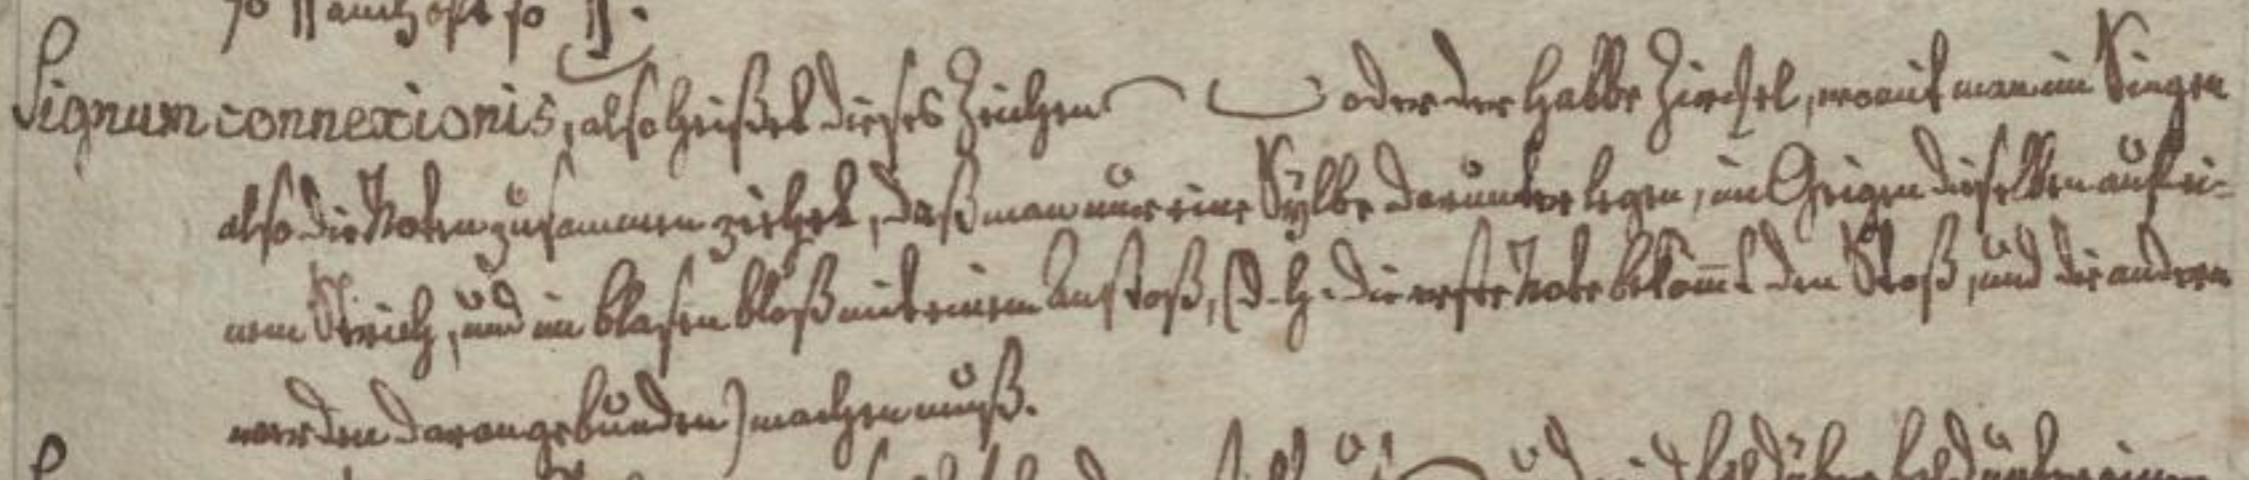 so || auch oft so ||.
Signum connexionis, also heißet dieses Zeichen oder der halbe Zirckel, womit man im Singen
also die Noten zusammen ziehet, daß man nur eine Sylbe darunter legen, im Geigen dieselben auf ei-
nem Strich, und im blasen bloß mit einem Anstoß, (d. h. die erste Note bekom̅t den Stoß, und die andern
werden daran gebunden) machen muß.